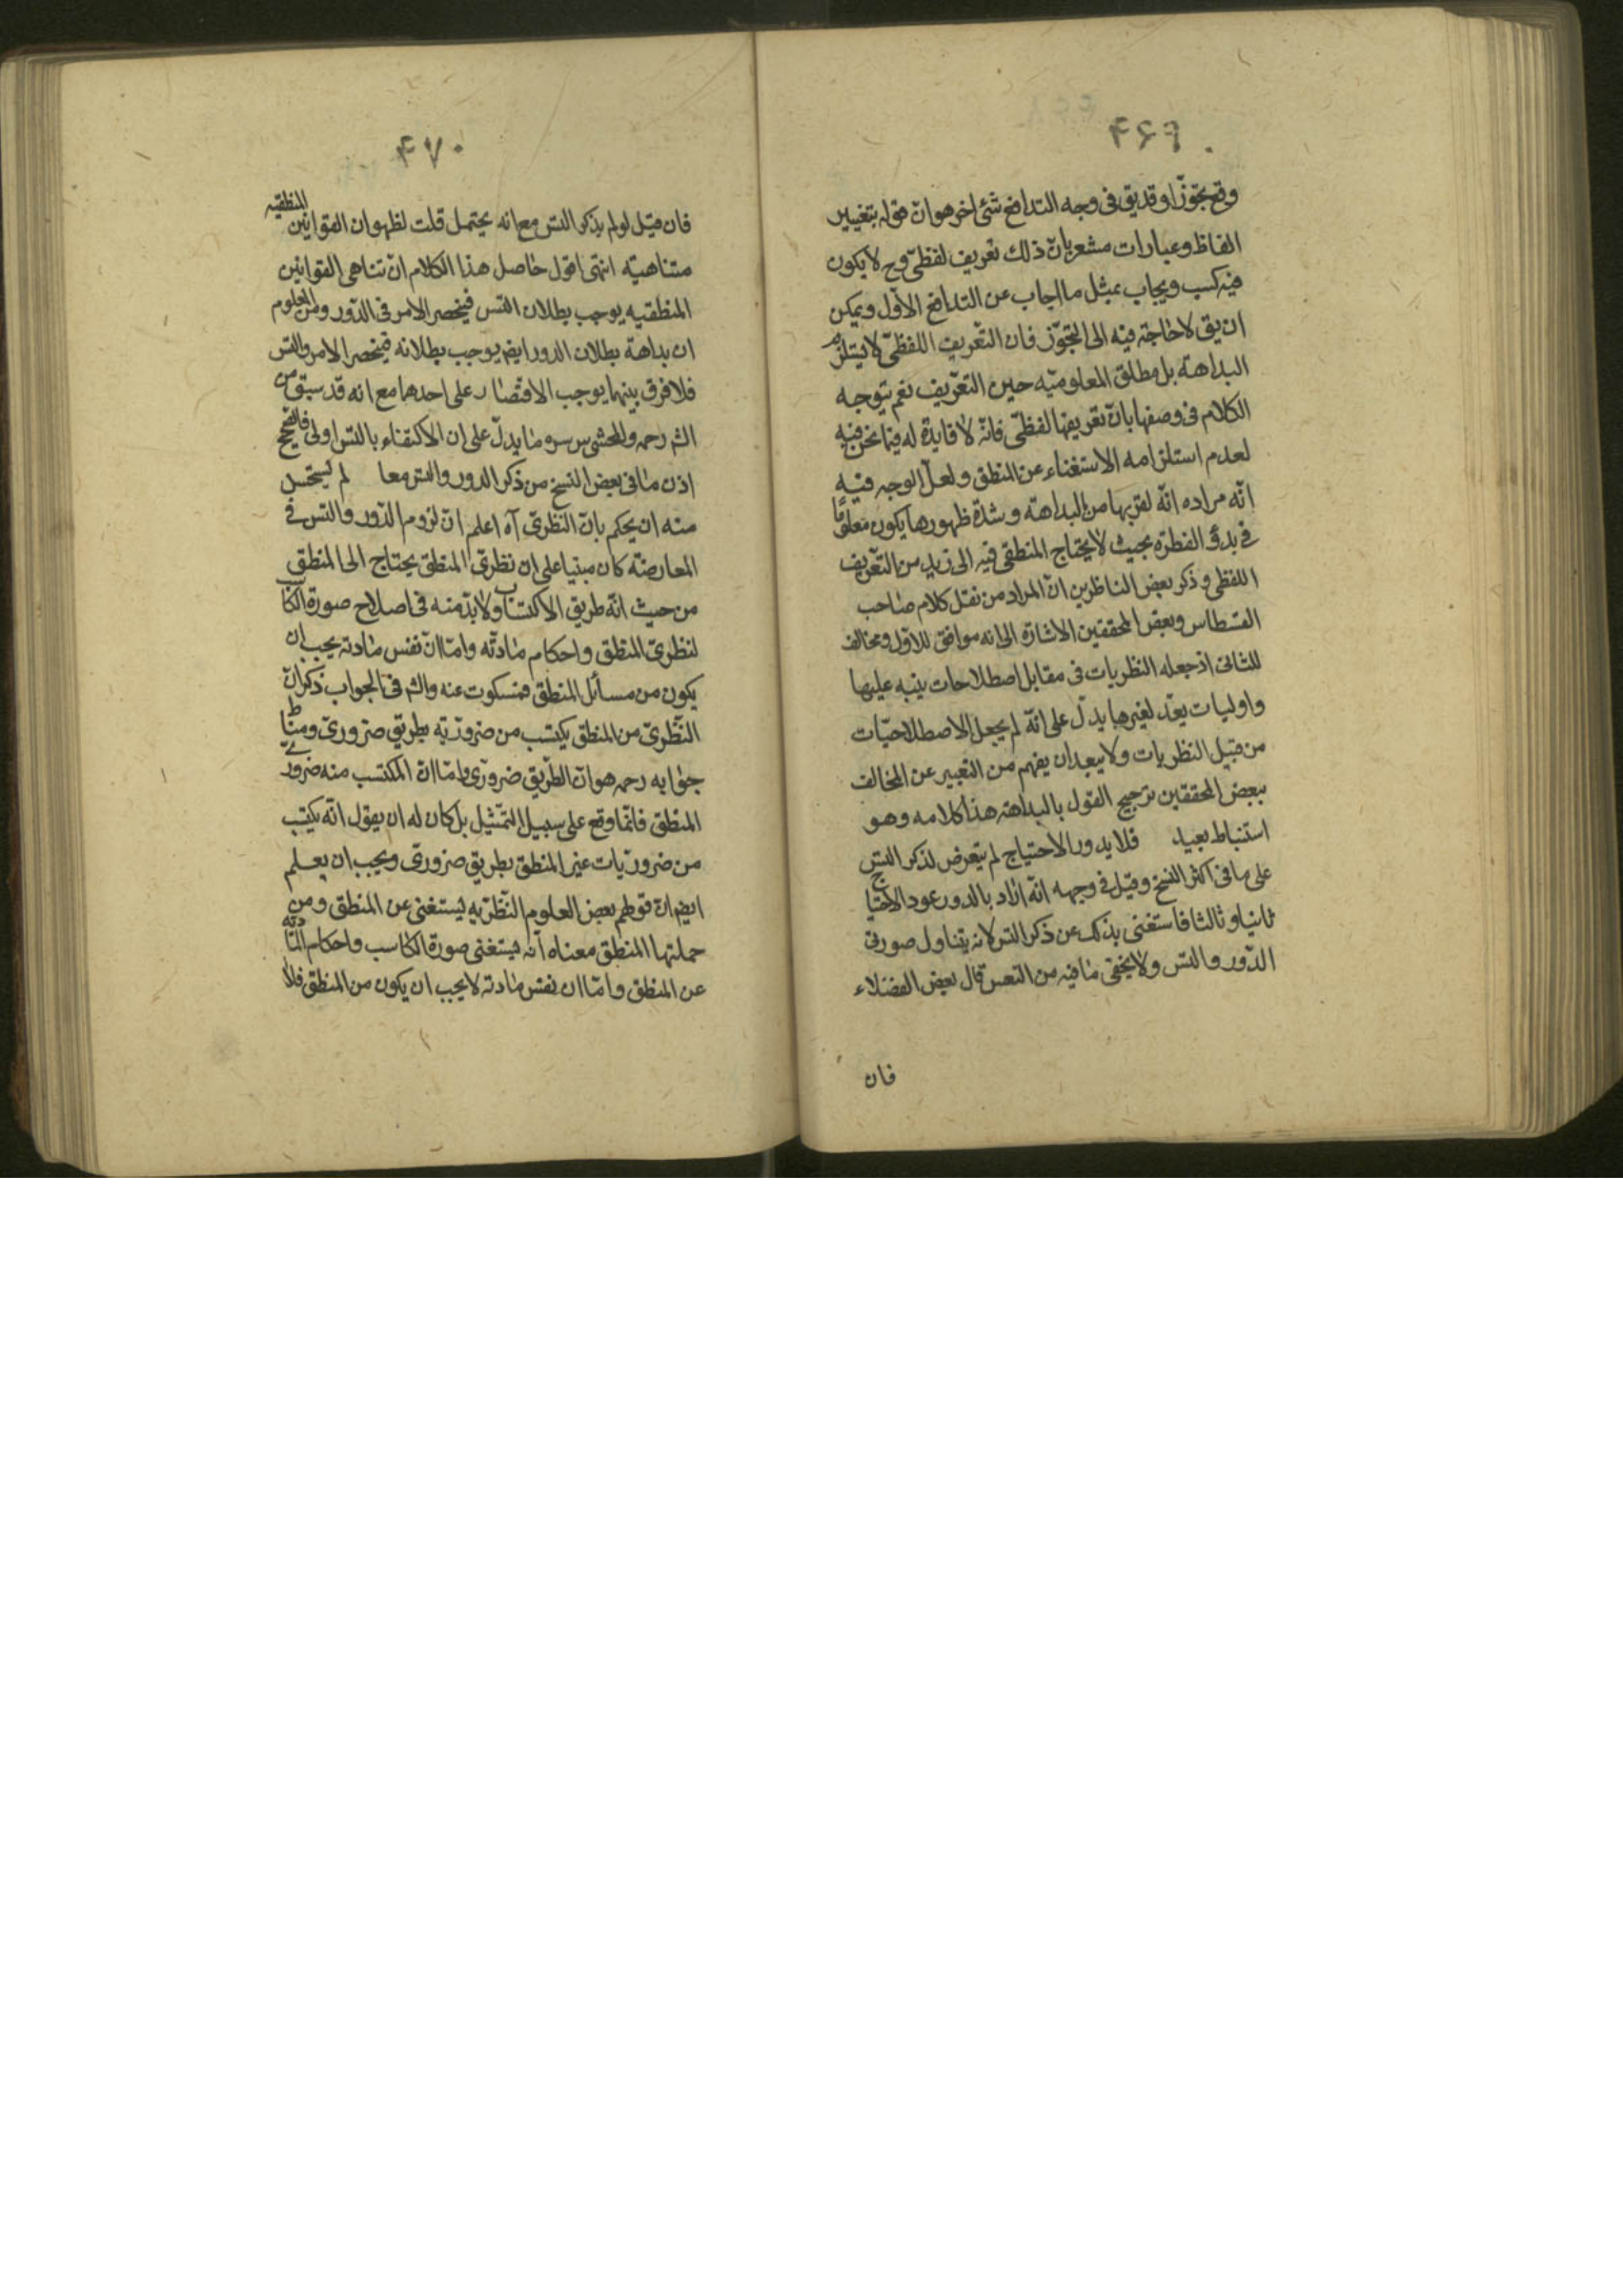 ۴۶۹
وقع تجوّزا وقد يق فى وجه التدافع شئ اخر هو ان قوله بتغيير
الفاظ وعبارات مشعر بان ذلك تعريف لفظىّ وح لا يكون
فيه كسب ويجاب بمثل ما اجاب عن التدافع الاوّل ويمكن
ان يق لا حاجة فيه الى التجوّز فان التعريف اللفظىّ لا يستلزم
البداهة بل مطلق المعلوميّه حين التعريف نعم يتوجه
الكلام فى وصفها بان تعريفها لفظىّ فانّه لا فايدة له فيما نحن فيه
لعدم استلزامه الاستغناء عن المنطق ولعلّ الوجه فيه
انّه مراده انّه لقربها من البداهة وشدة ظهورها يكون معلومًا
فى بدؤ الفطره بحيث لا يحتاج المنطقى فيه الى زيد من التعريف
اللفظى وذكر بعض الناظرين انّ المراد من نقل كلام صاحب
القسطاس وبعض المحققين الاشارة الى انه موافق للاوّل ومخالف
للثانى اذ جعله النظريات فى مقابل اصطلاحات ينبه عليها
واوليات يعدّ لغيرها يدلّ على انّه لم يجعل الاصطلاحيّات
من قبيل النظريات ولا يبعد ان يفهم من التعبير عن المخالف
ببعض المحققين ترجيح القول بالبداهة هذا كلامه وهو
استنباط بعيد فلا يدور الاحتياج لم يتعرض لذكر التس
على ما فى اكثر النسخ وقيل فى وجهه انّه اراد بالدور عود الاحتياج
ثانيا وثالثا فاستغنى بذلك عن ذكر التس لانه يتناول صورتى
الدّور والتس ولا يخفى ما فيه من التعس قال بعض الفضلاء
فان
۴۷۰
فان قيل لو لم يذكر التس مع انه يحتمل قلت لظهور ان القوانين المنطقيه
متناهيّه انتهى اقول حاصل هذا الكلام انّ تناهى القوانين
المنطقيه يوجب بطلان التس فينحصر الامر فى الدّور ومن المعلوم
ان بداهة بطلان الدور ايضم يوجب بطلانه فينحصر الامر والتس
فلا فرق بينهما يوجب الاقتصار على احدهما مع انه قد سبق من
الشم رحمه والمحشى س سره ما يدلّ على ان الاكتفاء بالتس اولى فالصحيح
اذن ما فى بعض النسخ من ذكر الدور والتس معا لم يستحسن
منه ان يحكم بان النظرىّ آه اعلم انّ لزوم الدّور والتس فى
المعارضة كان مبنيا على ان نظرىّ المنطق يحتاج الى المنطق
من حيث انّه طريق الاكتساب ولا بدّ منه فى اصلاح صورة الكاسب
لنظرىّ المنطق واحكام مادّته وامّا انّ نفس مادته يجب ان
يكون من مسائل المنطق فمسكوت عنه والشم فى الجواب ذكر انّ
النّظرىّ من المنطق يكتسب من ضروريّه بطريق ضرورىّ ومناط
جوابه رحمه هو ان الطّريق ضرورى وامّا انّ المكتسب منه ضرورىّ
المنطق فانّما وقع على سبيل التمثيل بل كان له ان يقول انّه يكتسب
من ضروريات غير المنطق بطريق ضرورى ويجب ان يعلم
ايضم ان قولهم بعض العلوم النّظريّه ليستغنى عن المنطق ومن
جملتها المنطق معناه انّه يستغنى صورة الكاسب واحكام المادّته
عن المنطق وامّا ان نفس مادته لا يجب ان يكون من المنطق فلا